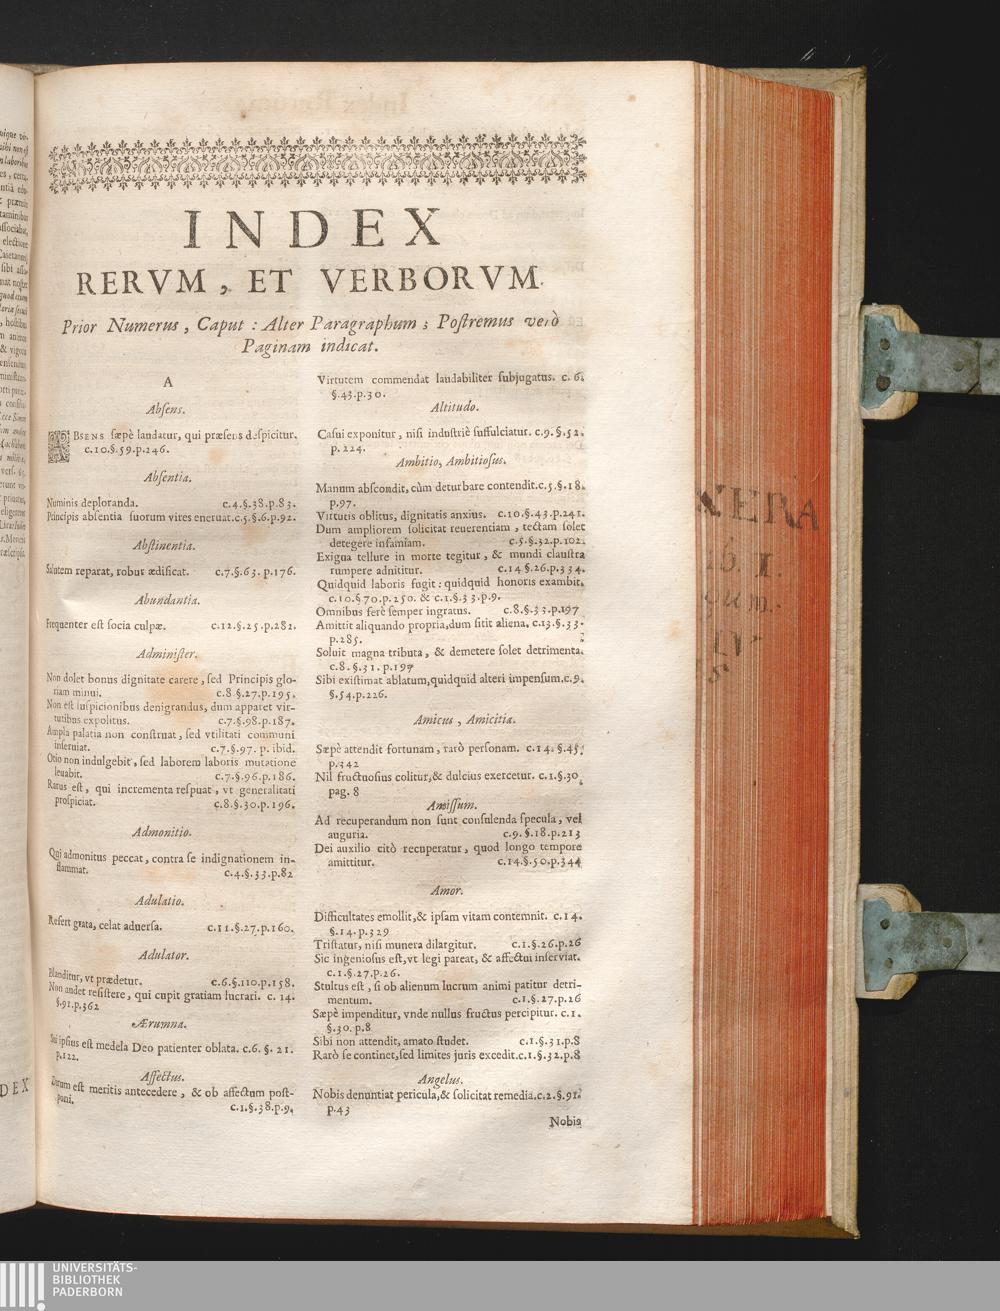 INDEX
RERVM, ET VERBORVM.
Prior Numerus, Caput: Alter Paragraphum; Postremus verò
Paginam indicat.
A
Absens.
ABSENS sæpè laudatur, qui præsens despicitur.
c.10.§.59.p.246.
Absentia.
Numinis deploranda. c.4.§.38.p.83.
Principis absentia suorum vires eneruat.c.5.§.6.p.92.
Abstinentia.
Salutem reparat, robur ædificat. c.7.§.63.p.176.
Abundantia.
Frequenter est socia culpæ. c.12.§.25.p.282.
Administer.
Non dolet bonus dignitate carere, sed Principis glo-
riam minui. c.8.§.27.p.195.
Non est suspicionibus denigrandus, dum apparet vir-
tutibus expolitus. c.7.§.98.p.187.
Ampla palatia non construat, sed vtilitati communi
inseruiat. c.7.§.97. p. ibid.
Otio non indulgebit, sed laborem laboris mutatione
leuabit. c.7.§.96.p.186.
Ratus est, qui incrementa respuat, vt generalitati
prospiciat. c.8.§.30.p.196.
Admonitio.
Qui admonitus peccat, contra se indignationem in-
flammat. c.4.§.33.p.82
Adulatio.
Refert grata, celat aduersa. c.11.§.27.p.160.
Adulator.
Blanditur, vt prædetur. c.6.§.110.p.158.
Non audet resistere, qui cupit gratiam lucrari. c. 14.
§.91.p.362
Ærumna.
Sui ipsius est medela Deo patienter oblata. c.6. §. 21.
p.122.
Affectus.
Durum est meritis antecedere, & ob affectum post-
poni. c.1.§.38.p.9.
Virtutem commendat laudabiliter subjugatus. c. 6.
§.43.p.30.
Altitudo.
Casui exponitur, nisi industriè suffulciatur. c.9.§.52.
p. 224.
Ambitio, Ambitiosus.
Manum abscondit, cùm deturbare contendit.c.5.§.18.
p.97.
Virtutis oblitus, dignitatis anxius. c.10.§.43.p.241.
Dum ampliorem solicitat reuerentiam, tectam solet
detegere infamiam. c.5.§.32.p.102.
Exigua tellure in morte tegitur, & mundi claustra
rumpere adnititur. c.14 §.26.p.334.
Quidquid laboris fugit: quidquid honoris exambit.
c.10.§.70.p.250. & c.1.§.33.p.9.
Omnibus ferè semper ingratus. c.8.§.33.p.197
Amittit aliquando propria,dum sitit aliena. c.13.§.33.
p.285.
Soluit magna tributa, & demetere solet detrimenta.
c.8.§.31.p.197
Sibi existimat ablatum,quidquid alteri impensum.c.9.
§.54.p.226.
Amicus, Amicitia.
Sæpè attendit fortunam, rarò personam. c.14.§.45.
p.342
Nil fructuosius colitur,& dulcius exercetur. c.1.§.30.
pag. 8
Amissum.
Ad recuperandum non sunt consulenda specula, vel
auguria. c.9.§.18.p.213
Dei auxilio citò recuperatur, quod longo tempore
amittitur. c.14.§.50.p.344
Amor.
Difficultates emollit,& ipsam vitam contemnit. c.14.
§.14.p.329
Tristatur, nisi munera dilargitur. c.1.§.26.p.26
Sic ingeniosus est,vt legi pareat, & affectui inserviat.
c.1.§.27.p.26.
Stultus est, si ob alienum lucrum animi patitur detri-
mentum. c.1.§.27.p.26
Sæpè impenditur, vnde nullus fructus percipitur. c.1.
§.30.p.8
Sibi non attendit, amato studet. c.1.§.31.p.8
Rarò se continet,sed limites juris excedit.c.1.§.32.p.8
Angelus.
Nobis denuntiat pericula,& solicitat remedia.c.2.§.91.
p.43
Nobis
DEX
UNIVERSITÄTS-
BIBLIOTHEK
PADERBORN